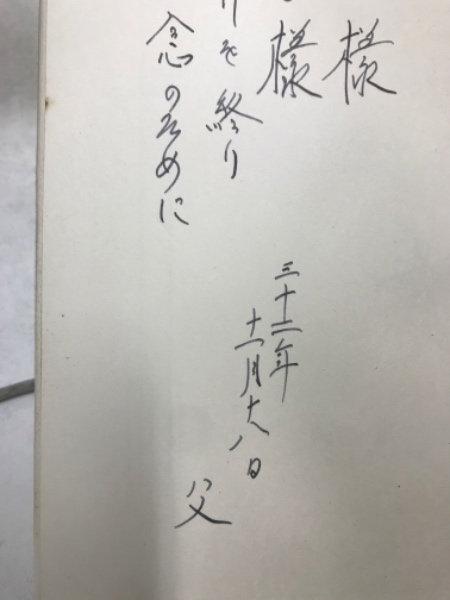 様
様
を終り
念のために
三十二年
十一月十八日
父